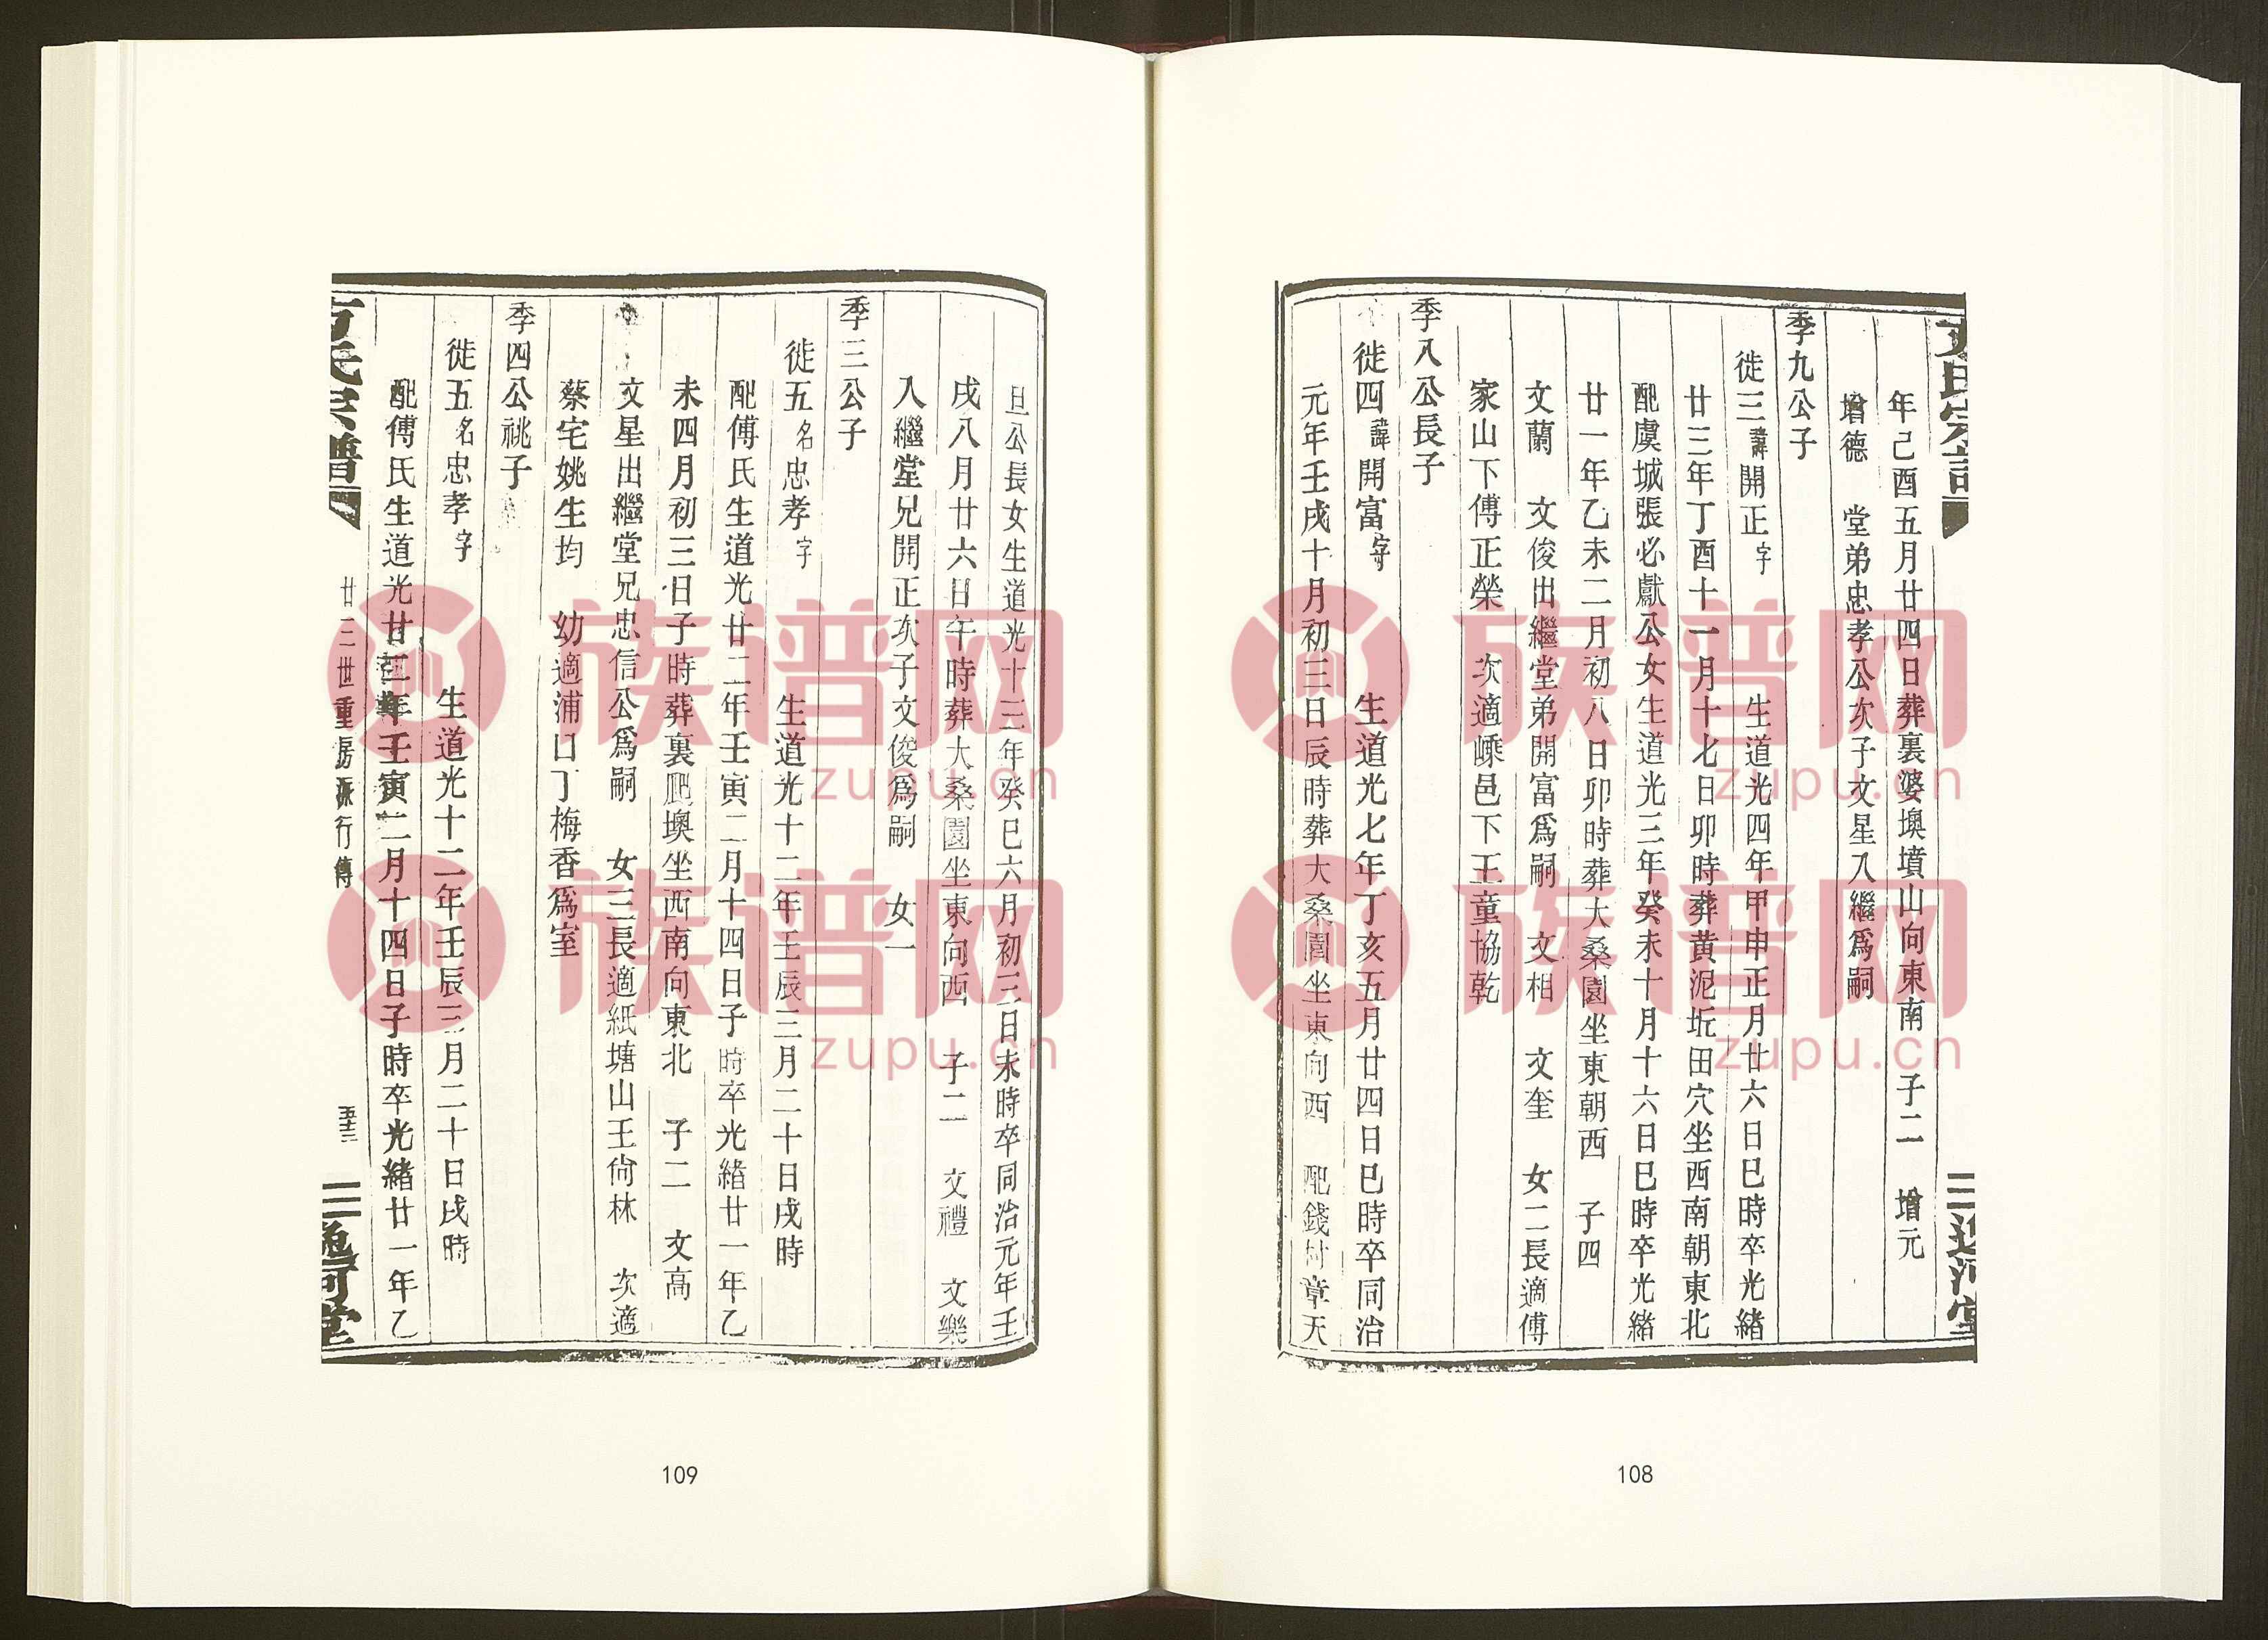 年己酉五月廿四日葬裏婆墺墳山向東南　子二　增元
增德　堂弟忠孝公次子文星入繼爲嗣
季九公子
徙三諱開正字　生道光四年甲申正月廿六日巳時卒光緒
廿三年丁酉十一月十七日卯時葬黄泥坵田穴坐西南朝東北
配虞城張必獻公女生道光三年癸未十月十六日巳時卒光緒
廿一年乙未二月初八日卯時葬大桑園坐東朝西　子四
文蘭　文俊出繼堂弟開富爲嗣　文相　文奎　女二長適傅
家山下傅正榮　次適嵊邑下王童協乾
季八公長子
徙四諱開富字　生道光七年丁亥五月廿四日巳時卒同治
元年壬戌十月初三日辰時葬大桑園坐東向西　配錢村章天
108
旦公長女生道光十三年癸巳六月初三日未時卒同治元年壬
戌八月廿六日午時葬大桑園坐東向西　子二　文禮　文樂
入繼堂兄開正次子文俊爲嗣　女一
季三公子
徙五名忠孝字　生道光十二年壬辰三月二十日戌時
配傅氏生道光廿二年壬寅二月十四日子時卒光緒廿一年乙
未四月初三日子時葬裏墺坐西南向東北　子二　文高
文星出繼堂兄忠信公爲嗣　女三長適紙塘山王尙林　次適
蔡宅姚生均　幼適浦口丁梅香爲室
季四公祧子
徙五名忠孝字　生道光十二年壬辰三月二十日戌時
配傅氏生道光廿二年壬寅二月十四日子時卒光緒廿一年乙
氏宗譜　廿三世重房派行傳　五十三　堂
109
族谱网
zupu.cn
族谱网
zupu.cn
族谱网
zupu.cn
族谱网
zupu.cn